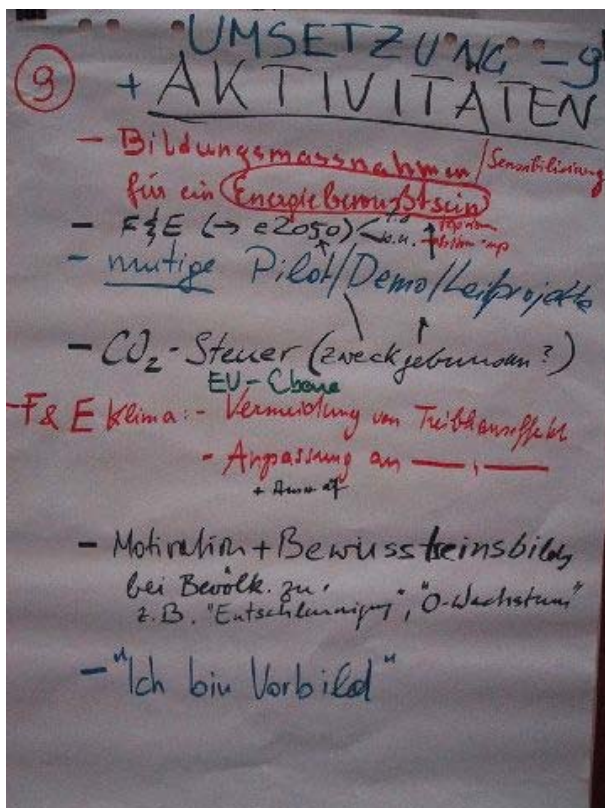 UMSETZUNG -9
9 + AKTIVITÄTEN
- Bildungsmassnahmen / Sensibilisierung
für ein Energiebewußtsein
- F&E (→ e2050) < t.d. top down
b.u. bottom-up
- mutige Pilot/Demo/Leitprojekte
- CO2-Steuer (zweckgebunden?)
EU-Ebene
- F&E Klima: - Vermeidung von Treibhauseffekt
- Anpassung an — " —
- Motivation + Bewusstseinsbildg
bei Bevölk. zu
z.B. "Entschleunigung", "0-Wachstum"
- "Ich bin Vorbild"